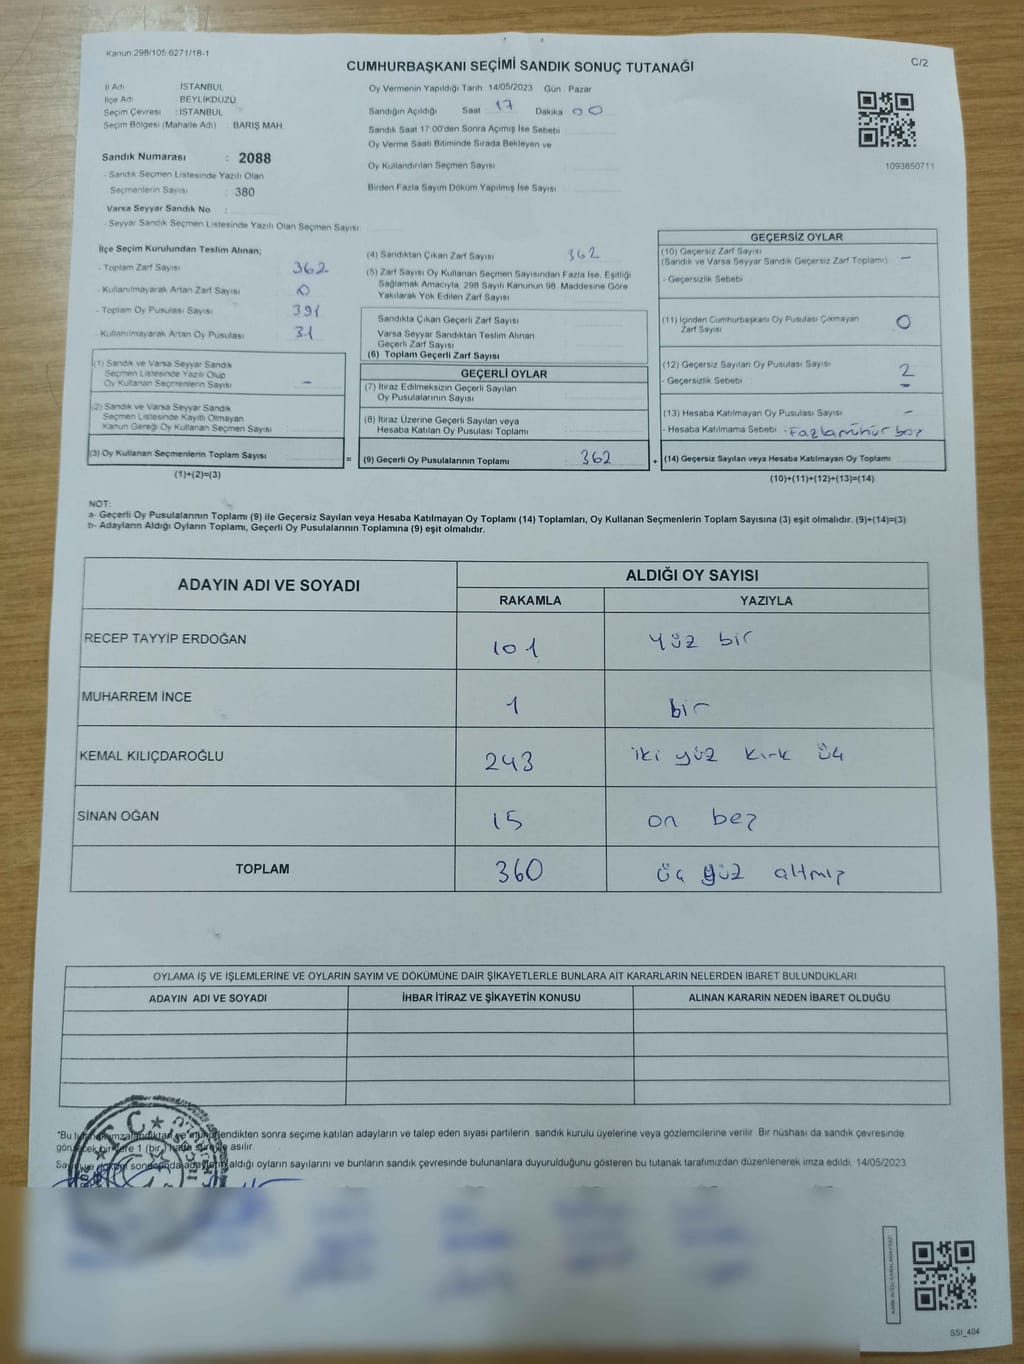 Kanun.298/105.6271/18-1
C/2
CUMHURBAŞKANI SEÇİMİ SANDIK SONUÇ TUTANAĞI
İl Adı : İSTANBUL
İlçe Adı : BEYLİKDÜZÜ
Seçim Çevresi : İSTANBUL
Seçim Bölgesi (Mahalle Adı) : BARIŞ MAH.
Sandık Numarası : 2088
- Sandık Seçmen Listesinde Yazılı Olan
Seçmenlerin Sayısı : 380
Varsa Seyyar Sandık No :
- Seyyar Sandık Seçmen Listesinde Yazılı Olan Seçmen Sayısı
Oy Vermenin Yapıldığı Tarih : 14/05/2023 Gün : Pazar
Sandığın Açıldığı Saat 17 Dakika 00
Sandık Saat 17.00'den Sonra Açımış İse Sebebi
Oy Verme Saati Bitiminde Sırada Bekleyen ve
Oy Kullandırılan Seçmen Sayısı
Birden Fazla Sayım Döküm Yapılmış İse Sayısı
1093850711
İlçe Seçim Kurulundan Teslim Alınan;
- Toplam Zarf Sayısı 362
- Kullanılmayarak Artan Zarf Sayısı 0
- Toplam Oy Pusulası Sayısı 391
- Kullanılmayarak Artan Oy Pusulası 31
(1) Sandık ve Varsa Seyyar Sandık
Seçmen Listesinde Yazılı Olup
Oy Kullanan Seçmenlerin Sayısı -
(2) Sandık ve Varsa Seyyar Sandık
Seçmen Listesinde Kayıtlı Olmayan
Kanun Gereği Oy Kullanan Seçmen Sayısı
(3) Oy Kullanan Seçmenlerin Toplam Sayısı
(1)+(2)=(3)
(4) Sandıktan Çıkan Zarf Sayısı 362
(5) Zarf Sayısı Oy Kullanan Seçmen Sayısından Fazla İse, Eşitliği
Sağlamak Amacıyla, 298 Sayılı Kanunun 98. Maddesine Göre
Yakılarak Yok Edilen Zarf Sayısı
Sandıkta Çıkan Geçerli Zarf Sayısı
Varsa Seyyar Sandıktan Teslim Alınan
Geçerli Zarf Sayısı
(6) Toplam Geçerli Zarf Sayısı
GEÇERLİ OYLAR
(7) İtiraz Edilmeksizin Geçerli Sayılan
Oy Pusulalarının Sayısı
(8) İtiraz Üzerine Geçerli Sayılan veya
Hesaba Katılan Oy Pusulası Toplamı
= (9) Geçerli Oy Pusulalarının Toplamı 362 +
GEÇERSİZ OYLAR
(10) Geçersiz Zarf Sayısı
(Sandık ve Varsa Seyyar Sandık Geçersiz Zarf Toplamı) -
- Geçersizlik Sebebi
(11) İçinden Cumhurbaşkanı Oy Pusulası Çıkmayan
Zarf Sayısı 0
(12) Geçersiz Sayılan Oy Pusulası Sayısı 2
- Geçersizlik Sebebi -
(13) Hesaba Katılmayan Oy Pusulası Sayısı -
- Hesaba Katılmama Sebebi : Fazla mühür boş
(14) Geçersiz Sayılan veya Hesaba Katılmayan Oy Toplamı
(10)+(11)+(12)+(13)=(14)
NOT:
a- Geçerli Oy Pusulalarının Toplamı (9) ile Geçersiz Sayılan veya Hesaba Katılmayan Oy Toplamı (14) Toplamları, Oy Kullanan Seçmenlerin Toplam Sayısına (3) eşit olmalıdır. (9)+(14)=(3)
b- Adayların Aldığı Oyların Toplamı, Geçerli Oy Pusulalarının Toplamına (9) eşit olmalıdır.
ADAYIN ADI VE SOYADI
ALDIĞI OY SAYISI
RAKAMLA YAZIYLA
RECEP TAYYİP ERDOĞAN 101 yüz bir
MUHARREM İNCE 1 bir
KEMAL KILIÇDAROĞLU 243 iki yüz kırk üç
SİNAN OĞAN 15 on beş
TOPLAM 360 üç yüz altmış
OYLAMA İŞ VE İŞLEMLERİNE VE OYLARIN SAYIM VE DÖKÜMÜNE DAİR ŞİKAYETLERLE BUNLARA AİT KARARLARIN NELERDEN İBARET BULUNDUKLARI
ADAYIN ADI VE SOYADI İHBAR İTİRAZ VE ŞİKAYETİN KONUSU ALINAN KARARIN NEDEN İBARET OLDUĞU
*Bu sonra seçime katılan adayların ve talep eden siyasi partilerin sandık kurulu üyelerine veya gözlemcilerine verilir. Bir nüshası da sandık çevresinde
1 (bir) asılır.
aldığı oyların sayılarını ve bunların sandık çevresinde bulunanlara duyurulduğunu gösteren bu tutanak tarafımızdan düzenlenerek imza edildi. 14/05/2023
SSI_404